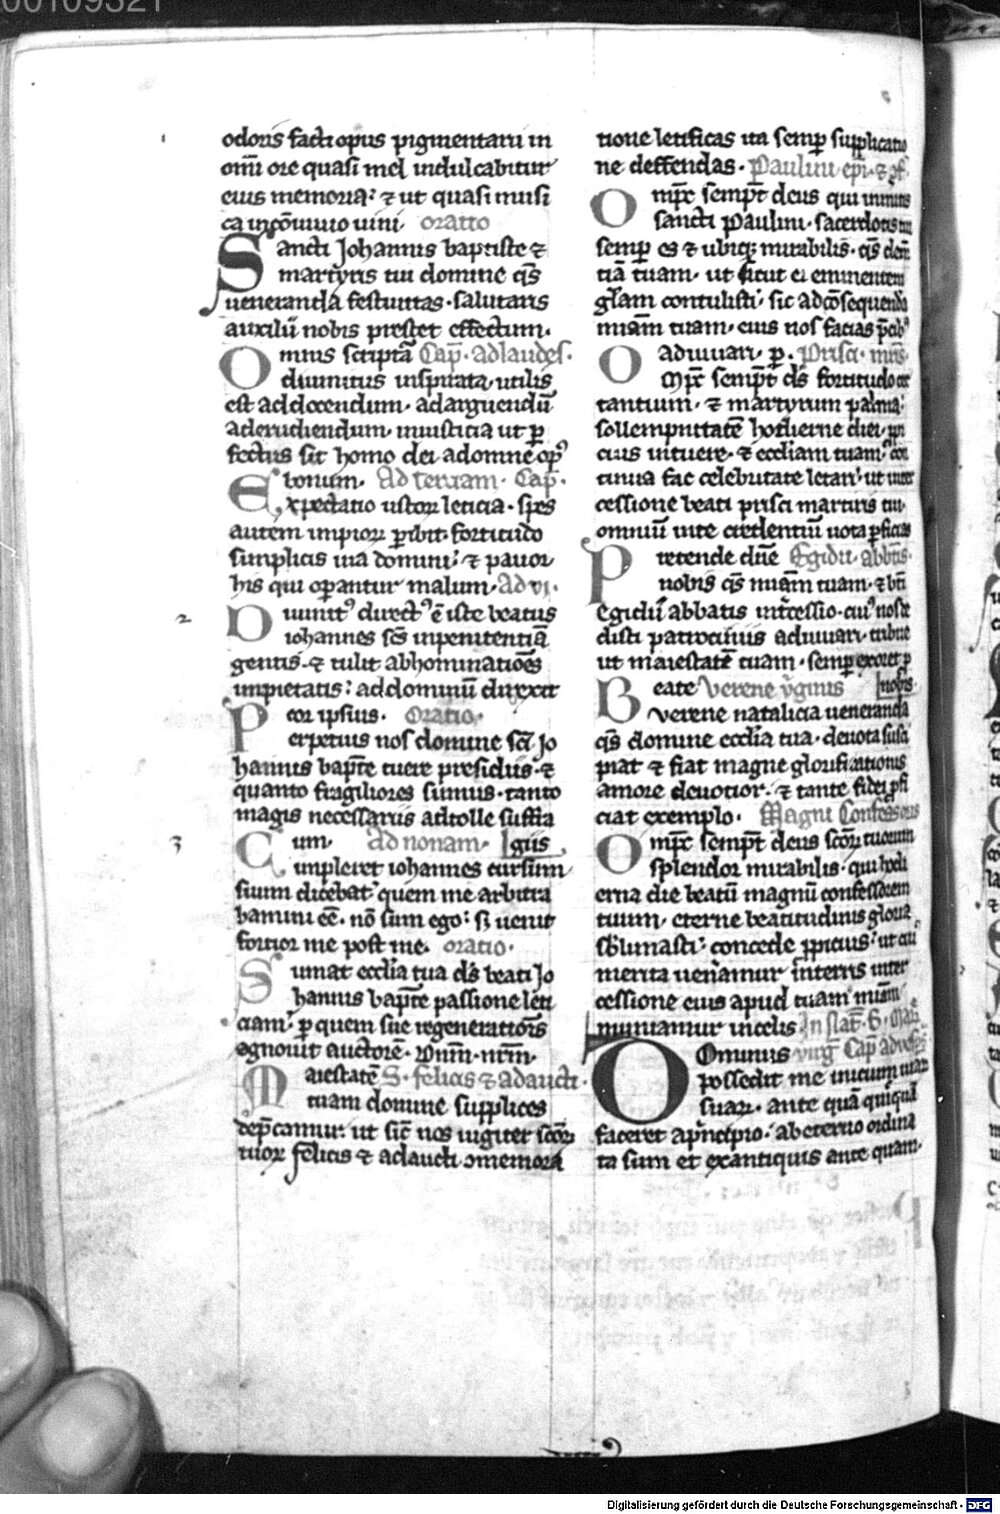 odoris facti opus pigmentarii in
om̄i ore quasi mel indulcabitur
eius memoria: ⁊ ut quasi musi
ca in cōuiuio uini. oratio
Sancti Johannis baptiste ⁊
martyris tui domine qs̄
ueneranda festiuitas. salutaris
auxiliū nobis prestet effectum.
Omnis scriptā Cap̄. ad laudes.
diuinitus inspirata, utilis
est ad docendum. ad arguendū
ad erudiendum. iniusticia ut p
fectus sit homo dei ad omne opꝰ
bonum. Ad terciam. Cap̄.
Expectatio iustoꝝ leticia. spes
autem impioꝝ ꝑibit. fortitudo
simplicis uia domini: ⁊ pauor
his qui oꝑantur malum. Ad vi.
2 Diuinitꝰ directꝰ ē iste beatus
iohannes sc̄s in penitentiā
gentis. ⁊ tulit abhominatiōes
impietatis: ad dominū direxit
cor ipsius. Oratio.
Perpetuis nos domine sc̄i Jo
hannis bapt̄e tuere presidiis. ⁊
quanto fragiliores sumus. tanto
magis necessariis adtolle suffra
um. Ad nonam. giis
3 Cum impleret iohannes cursum
suum dicebat. quem me arbitra
bamini eē. nō sum ego: sꝫ uenit
fortior me post me. oratio.
Sumat ecclīa tua ds̄ beati Jo
hannis bapt̄e passione leti
ciam. ꝑ quem sue regenerationis
cognouit auctorē. Dn̄m. nr̄m.
Maiestatē S. felicis ⁊ adaucti.
tuam domine supplices
dep̄camur. ut sic̄ nos iugiter scōꝝ
tuoꝝ felicis ⁊ adaucti ꝯmemora
tione letificas ita semꝑ supplicatio
ne deffendas. Paulini ep̄i. ⁊ ꝯf.
Om̄pc̄ sempt̄ deus qui in meritis
sancti Paulini. sacerdotis tui
semꝑ es ⁊ ubiqꝫ mirabilis. qs̄ clem̄
tiā tuam. ut sicut ei eminentem
gl̄am contulisti. sic ad cōsequendā
miā̄m tuam. eius nos facias p̄cibꝰ
adiuuari. ꝑ. Prisci. mr̄is.
Om̄pc̄ sempt̄ ds̄ fortitudo cer
tantium. ⁊ martyrum palma:
sollempnitatē hodierne diei. ꝓpi
cius intuere. ⁊ eccl̄iam tuam. con
tinua fac celebritate letari. ut inter
cessione beati prisci martiris tui.
omniū in te credentiū uota ꝑficias
Pretende dn̄e Egidii. abb̄is.
nobis qs̄ mīam tuam. ⁊ bt̄i
Egidii abbatis int̄cessio. cuiꝰ nos de
disti patrociniis adiuuari. tribue
ut maiestatē tuam. semꝑ exoret p
Beate Verene v̄ginis nobis
verene natalicia ueneranda
qs̄ domine eccl̄ia tua. deuota susci
piat ⁊ fiat magne glorificationis
amore deuotior. ⁊ tante fidei ꝓfi
ciat exemplo. Magni Confessoris
Om̄pc̄ sempt̄ deus scōꝝ tuorum
splendor mirabilis. qui hodi
erna die beatū magnū confessorem
tuum. eterne beatitudinis gloria
sublimasti: concede ꝓpicius. ut cuiꝰ
merita uen̄amur in terris inter
cessione eius apud tuam mīam
muniamur in celis. In
Dominus virḡ Cap̄ ad
possedit me inicium uiaꝝ
suaꝝ. ante quā quiquā
faceret a pͥncipio. ab eterno ordina
ta sum et ex antiquis ante quam.
Digitalisierung gefördert durch die Deutsche Forschungsgemeinschaft - DFG